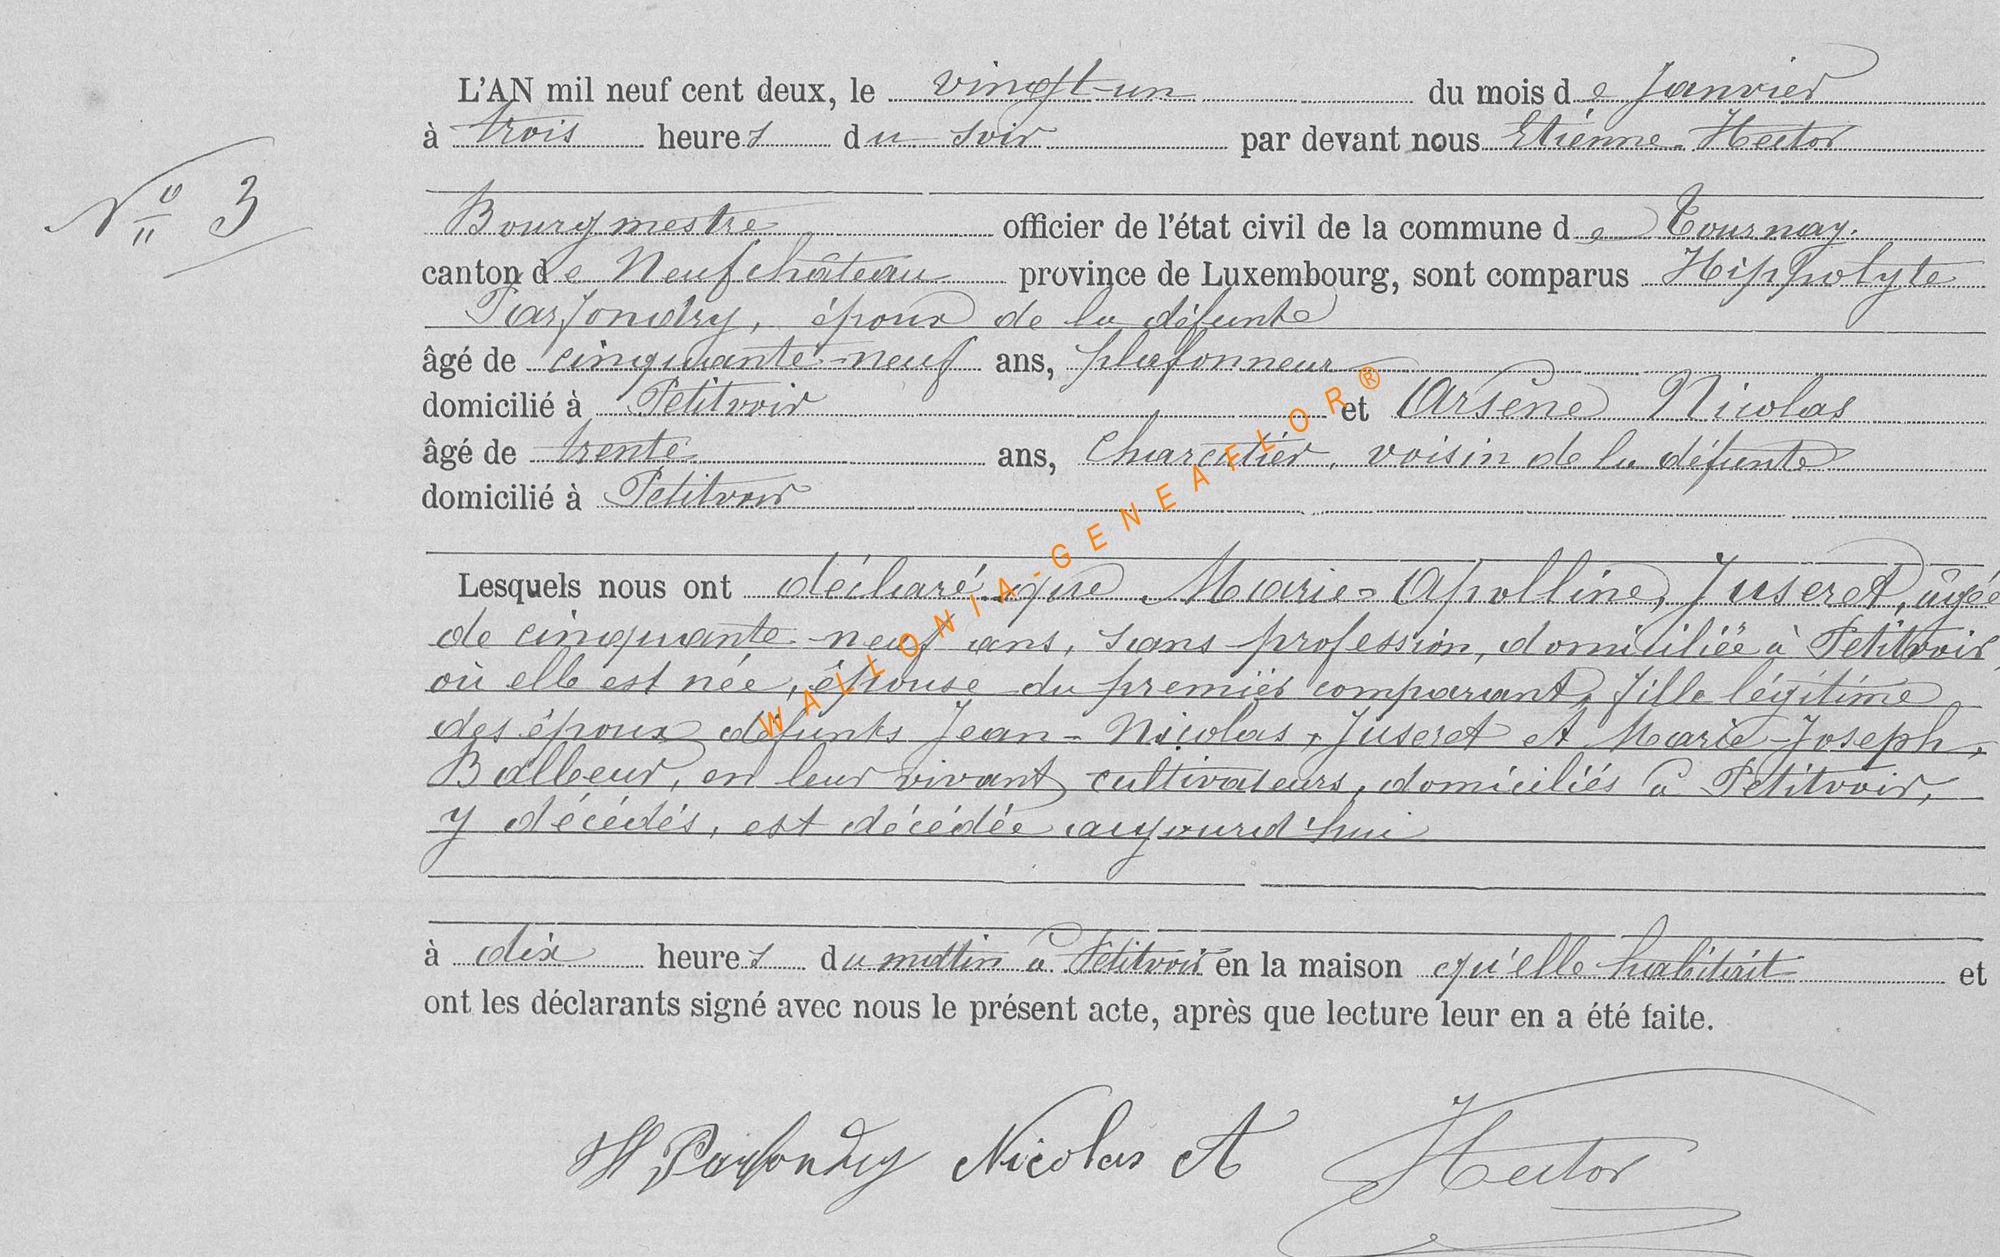 L'AN mil neuf cent deux, le vingt-un du mois de Janvier
à trois heures du soir par devant nous Etienne Hector
N° 3
Bourgmestre officier de l'état civil de la commune de Tournay.
canton de Neufchâteau province de Luxembourg, sont comparus Hippolyte
Parfondry, époux de la défunte
âgé de cinquante-neuf ans, plafonneur
domicilié à Petitvoir et Arsène Nicolas
âgé de trente ans, charcutier, voisin de la défunte
domicilié à Petitvoir
Lesquels nous ont déclaré que Marie-Apolline, Juseret, âgée
de cinquante-neuf ans, sans profession, domiciliée à Petitvoir,
où elle est née, épouse du premier comparant, fille légitime
des époux défunts Jean-Nicolas, Juseret et Marie-Joseph,
Balbeur, en leur vivant cultivateurs, domiciliés à Petitvoir,
y décédés, est décédée aujourd'hui
à dix heures du matin à Petitvoir en la maison qu'elle habitait et
ont les déclarants signé avec nous le présent acte, après que lecture leur en a été faite.
H Parfondry Nicolas A Hector
WALLONIA-GENEAFLOR®